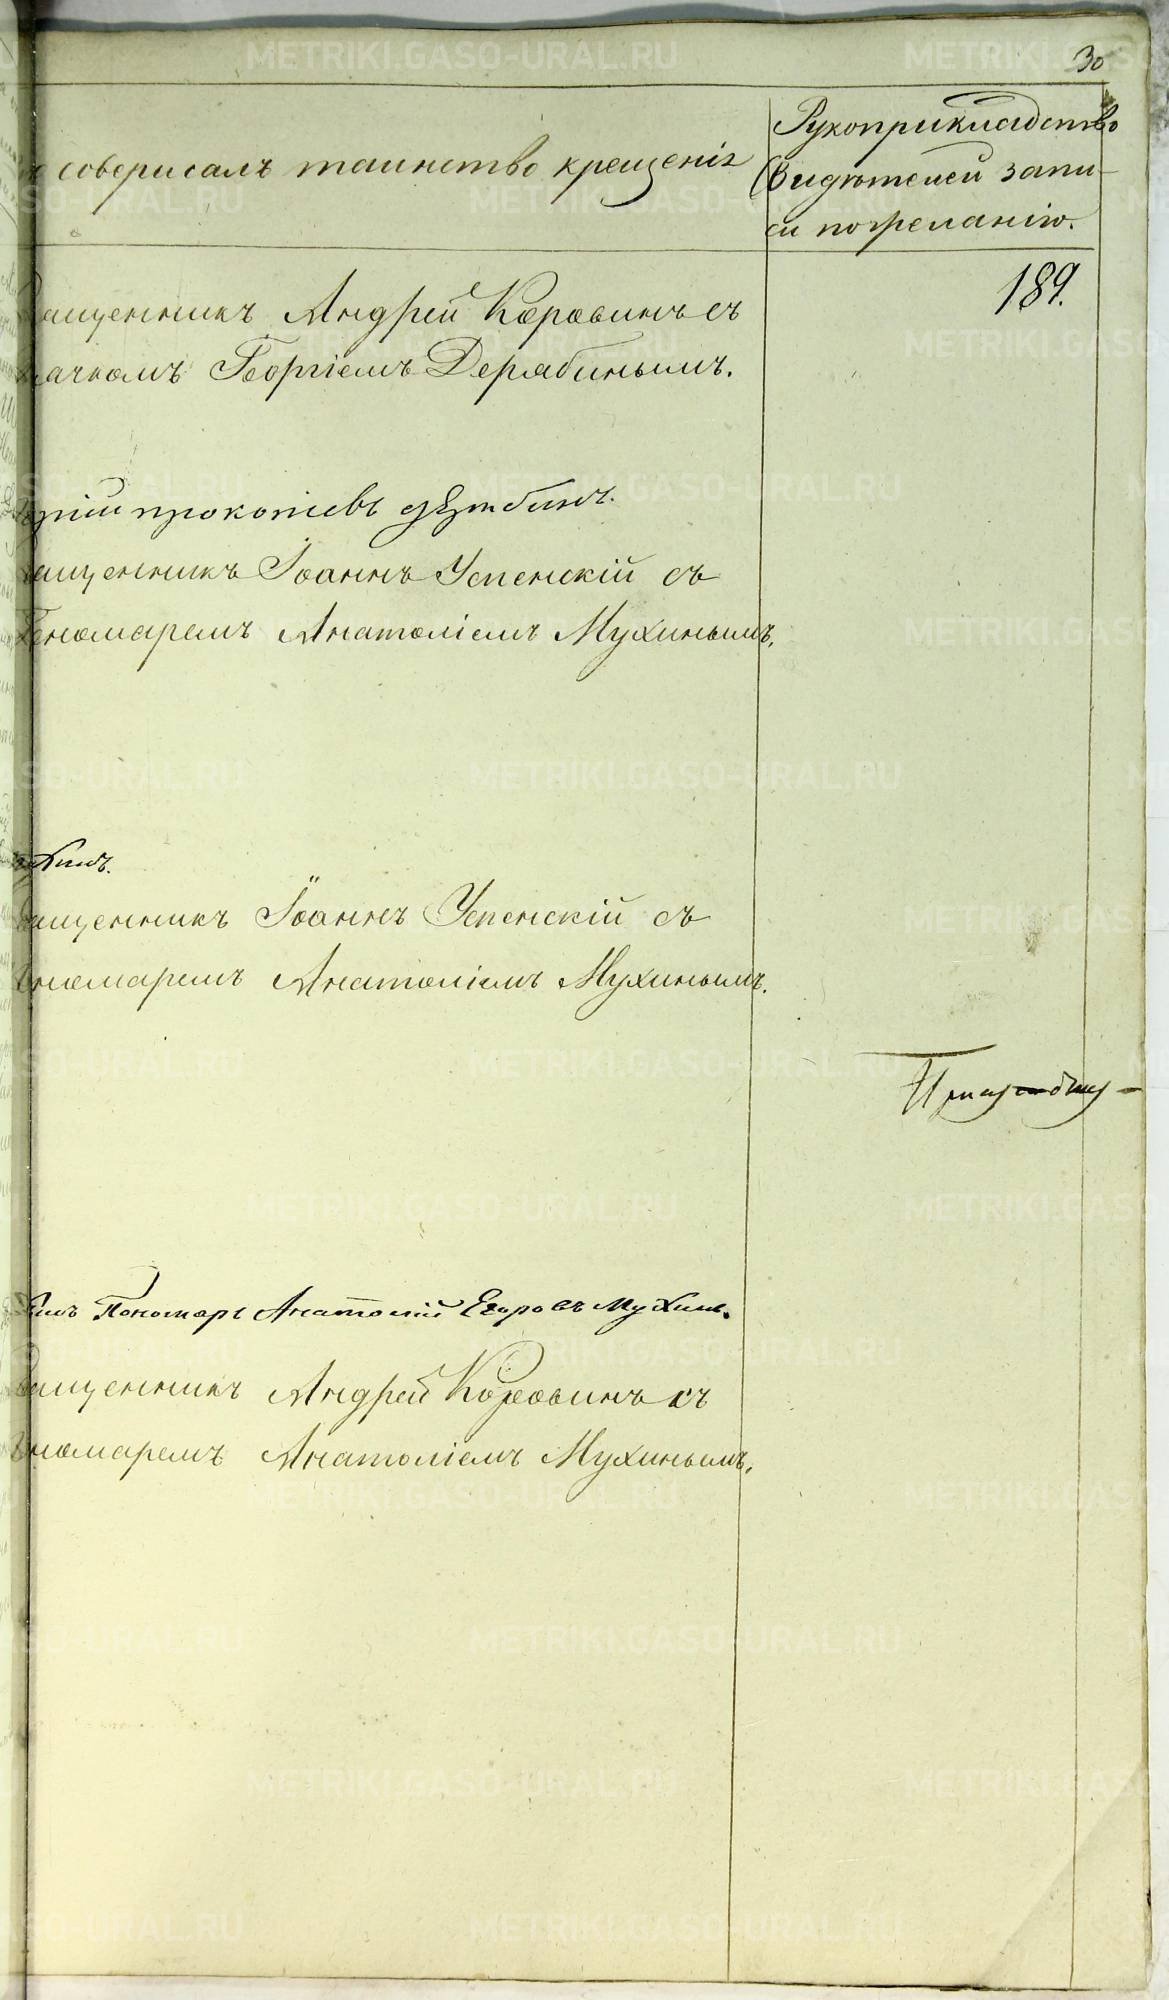 30
совершалъ таинство крещенія
Рукоприкладство
свидѣтелей запи-
си по желанію.
189.
священникъ Андрей Коровинъ съ
дьячкомъ Георгіемъ Дерябинымъ.
Прокопіевъ
священникъ Іоаннъ Успенскій съ
Пономаремъ Анатоліемъ Мухинымъ.
священникъ Іоаннъ Успенскій съ
пономаремъ Анатоліемъ Мухинымъ.
Пономарь Анатолій Егоровъ Мухинъ.
священникъ Андрей Коровинъ съ
пономаремъ Анатоліемъ Мухинымъ.
METRIKI.GASO-URAL.RU